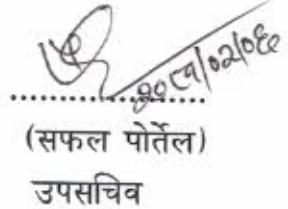 २०८१/०२/०६
....................
(सफल पोर्तेल)
उपसचिव